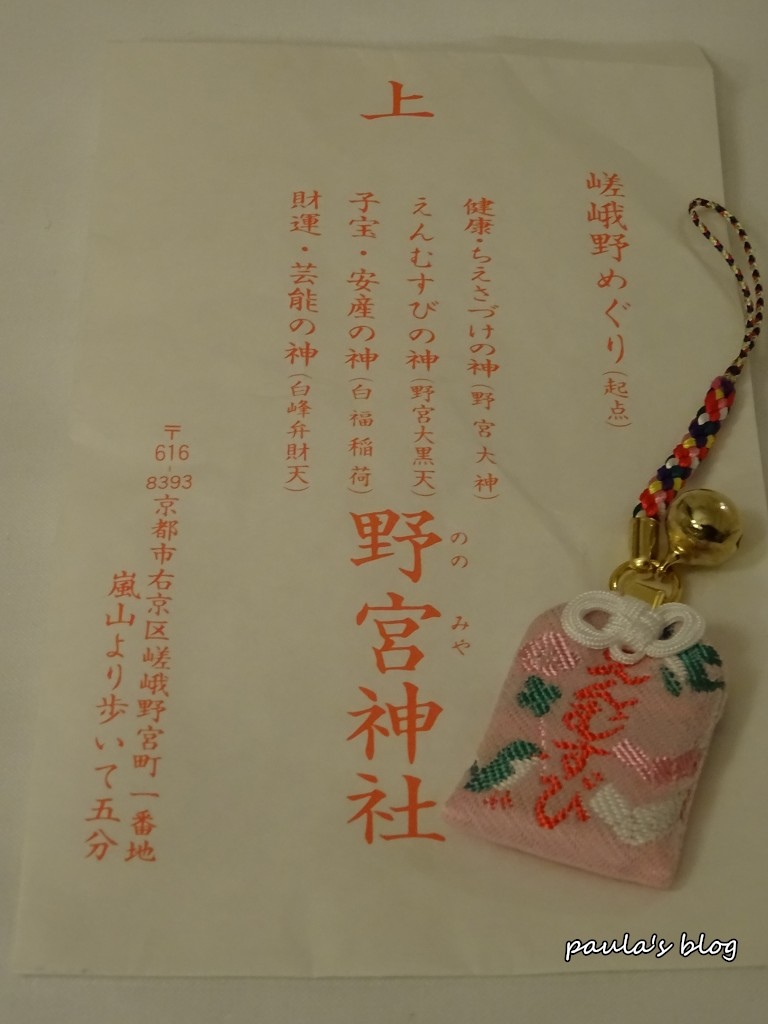 上
嵯峨野めぐり(起点)
健康・ちえさづけの神(野宮大神)
えんむすびの神(野宮大黒天)
子宝・安産の神(白福稲荷)
財運・芸能の神(白峰弁財天)
野宮神社
ののみや
〒616-8393京都市右京区嵯峨野宮町一番地
嵐山より歩いて五分
えんむすび
paula's blog